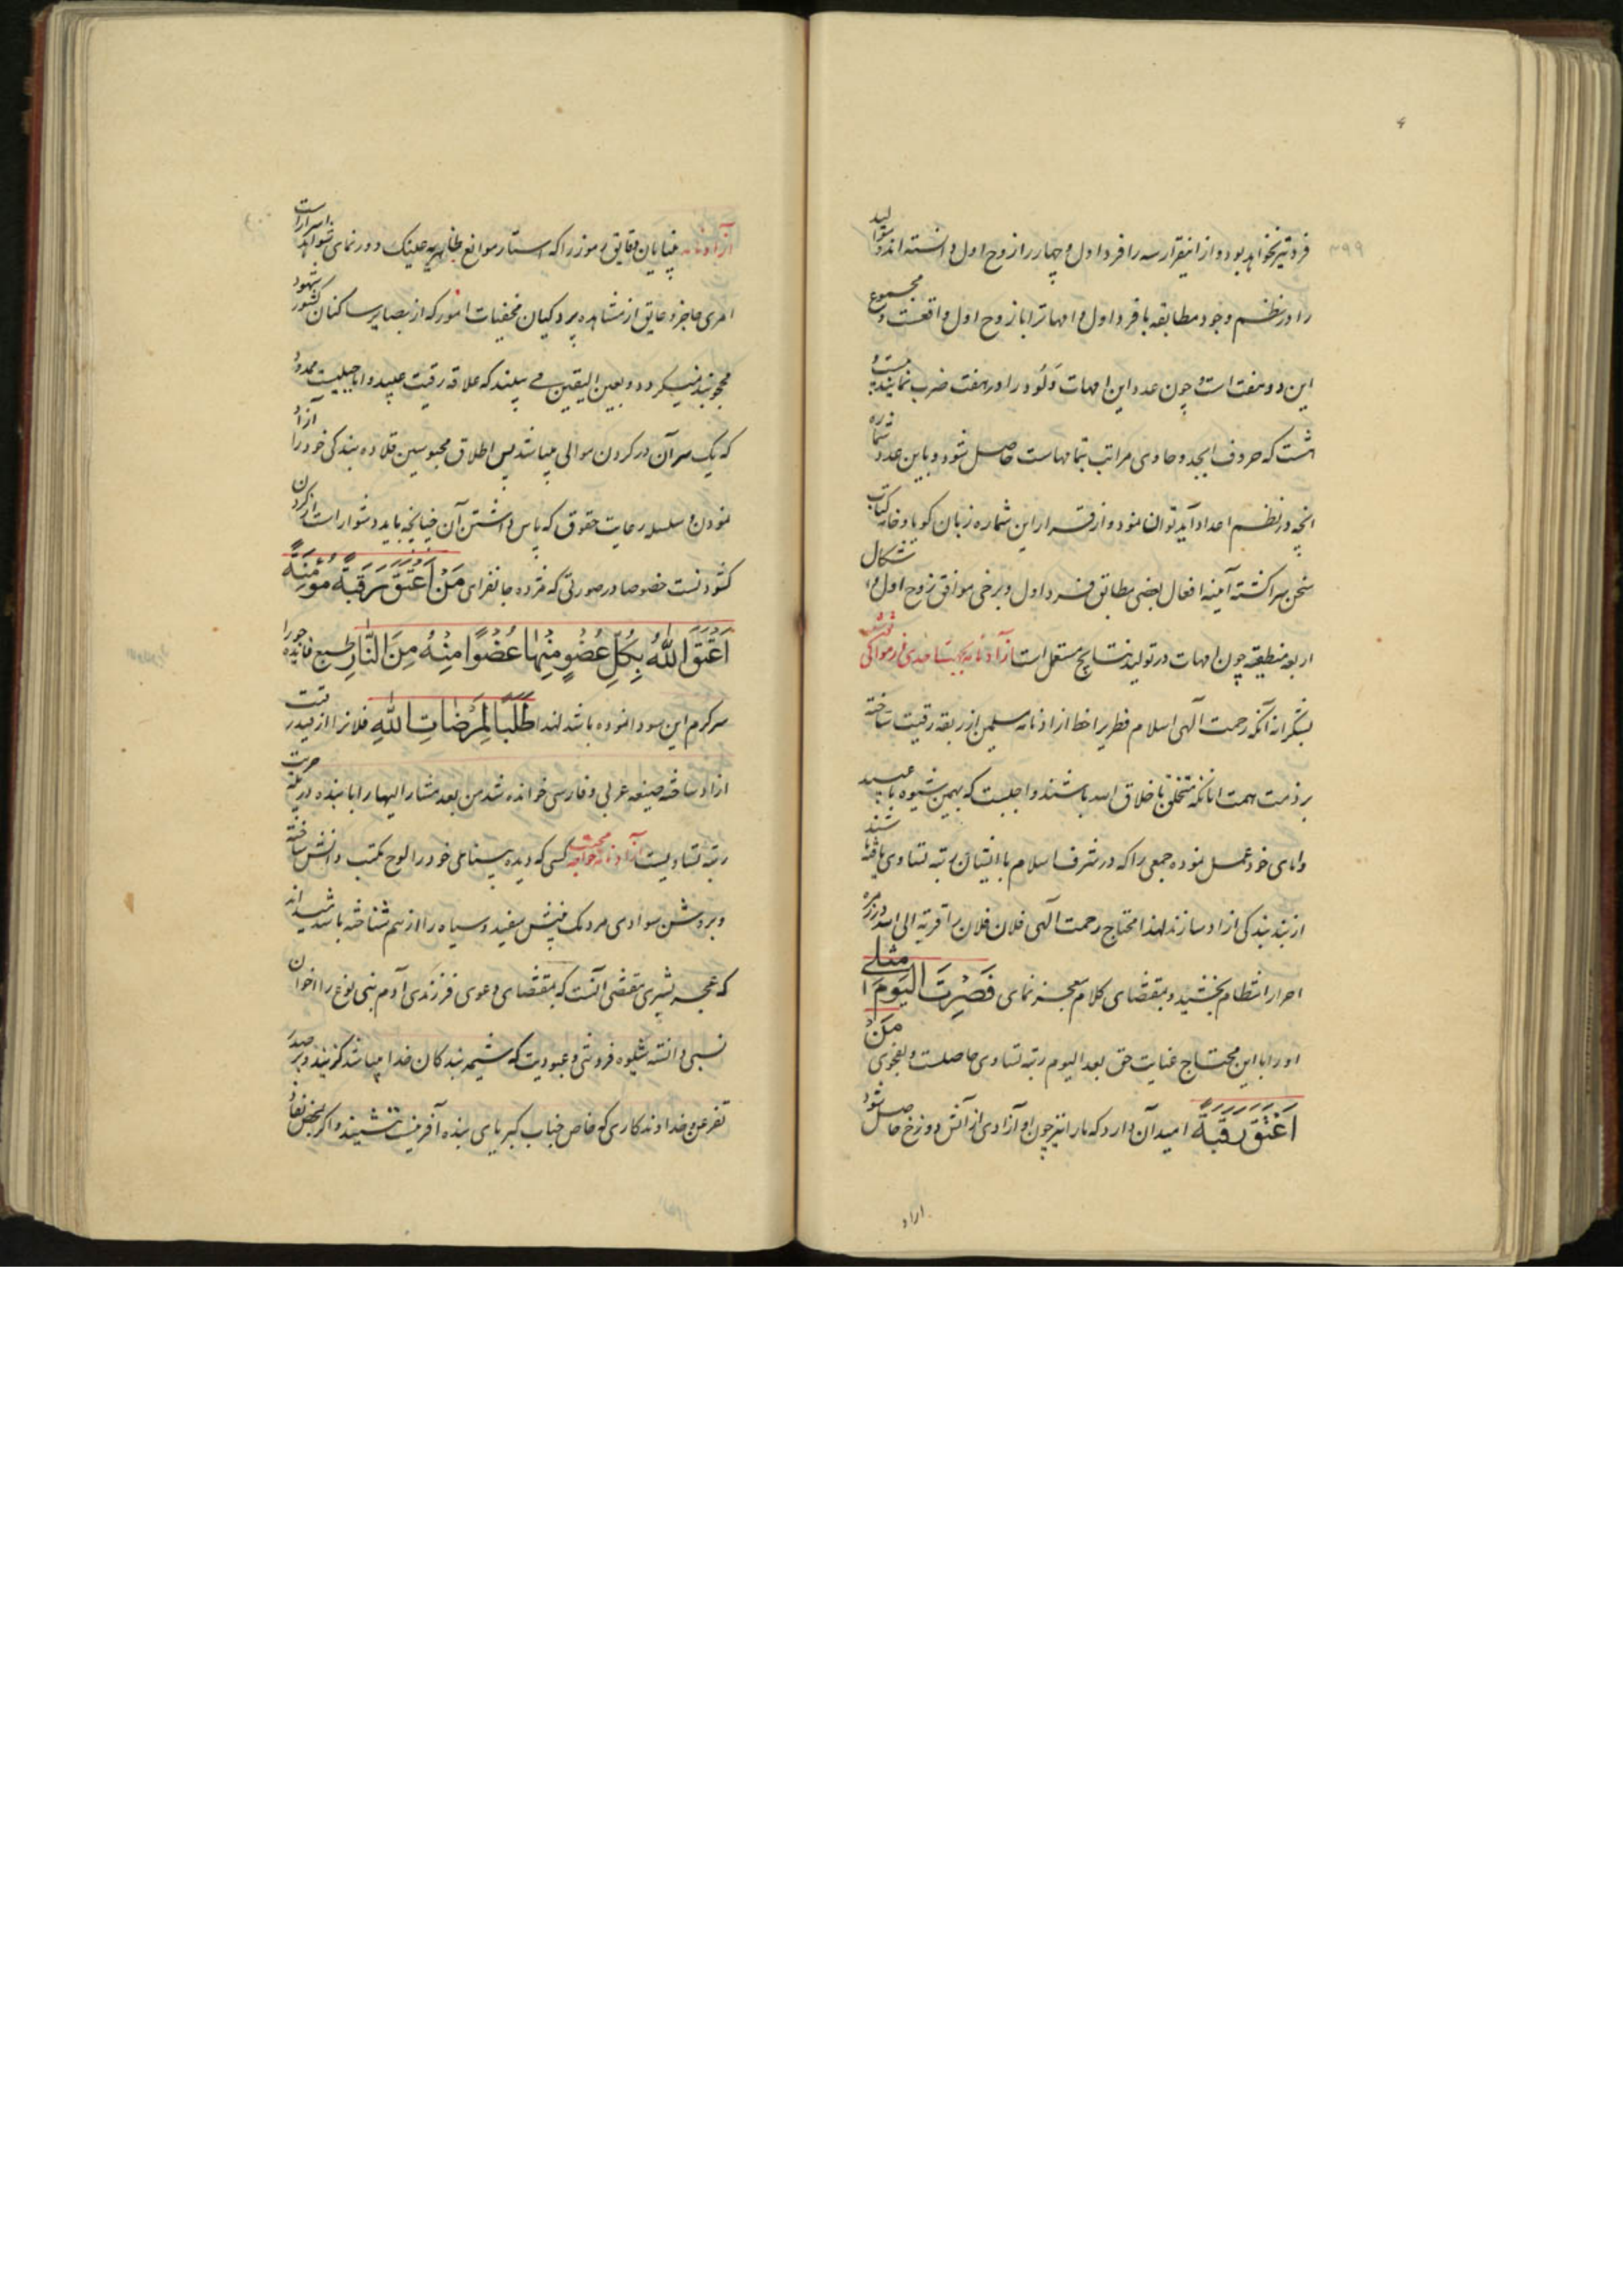 ۳۹۹
فردتیر نخواهد بود و ازاینقرار سه را فرد اول و چهار را زوج اول دانسته اند و موالید
را در نظم وجود مطابقه با فرد اول و امهات را با زوج اول واقعست و مجموع
این دو هفت است و چون عدد این امهات و را در هفت ضرب نمایند بیست و
هشت که حروف ابجد و حاوی مراتب بتمامهاست حاصل شود و باین عدد شماره
آنچه در نظم اعداد آید توان نمود و از قرار این شماره زبان گویا و خامه کتاب
سخن سرا گشته آینه افعال بعضی مطابق فرد اول و برخی موافق زوج اول و اشکال
اربعه منطقیه چون امهات در تولید نتایج مستعمل است آزادنامه
بشکرانه آنکه رحمت الهی اسلام فطری را خط ازادنامه مسلمین از ربقه رقیت ساخته
بر ذمت همت آنانکه متخلق باخلاق الله باشند واجبست که بهمین شیوه با عبید
و امای خود عمل نموده جمعی را که در شرف اسلام با ایشان رتبه تساوی یافته باشند
از بند بندگی ازاد سازند لهذا محتاج رحمت الهی فلان فلان را قربة الی الله در زمره
احرار انتظام بخشید و بمقتضای کلام معجز نمای فَصِرْتَ الیَومَ مثلی
او را با این محتاج عنایت حق بعد الیوم رتبه تساوی حاصلست و بفحوی مَنْ
اَعْتَقَ رَقَبَةً امید آن دارد که ما را نیز چون او آزادی از آتش دوزخ حاصل شود
ازاد
آزادنامه بینایان دقایق رموز را که استار موانع ظاهریه عینک دور نمای شواهد اسرار است
امری حاجز و عایق از مشاهده پردگیان مخفیات امور که از بصایر ساکنان کشور شهود
محجوبند نمیگردد و بعین الیقین می بینند که علاقه رقیت عبید و اما حبلیست ممدود
که یک سر آن در گردن موالی میباشد پس اطلاق محبوسین قلاده بندگی خود را آزاد
نمودن و سلسله رعایت حقوق که پاس داشتن آن چنانچه باید دشوار است از گردن
گشودنست خصوصا در صورتی که مژده جانفزای مَنْ اَعْتَقَ رَقَبَةً مُؤمِنَةً
اَعْتَقَ اللّٰهُ بِکُلِّ عُضْوٍ مِنْها عُضْوًا مِنْهُ مِنَ النَّارِ طبع فایده جو را
سرگرم این سودا نموده باشد لهذا طَلَبًا لِمَرْضاتِ اللّٰهِ فلان را از قید رقیت
ازاد ساخته صیغه عربی و فارسی خوانده شد من بعد مشار الیها را با بنده در حریت
رتبه تساویست آزادنامه خواجه کسی که دیده بینای خود را لوح مکتب دانش ساخته
و بروشن سوادی مردمک بینش سفید و سیاه را از هم شناخته باشد میداند
که عجز بشری مقتضی آنست که بمقتضای دعوی فرزندی آدم بنی نوع را اخوان
نسبی دانسته شیوه فروتنی و عبودیت که شیمه بندگان خدا میباشد گزیند و بر صدر
تفرعن و خداوندکاری که خاص جناب کبریای بنده آفرینست ننشیند و اگر بمحض